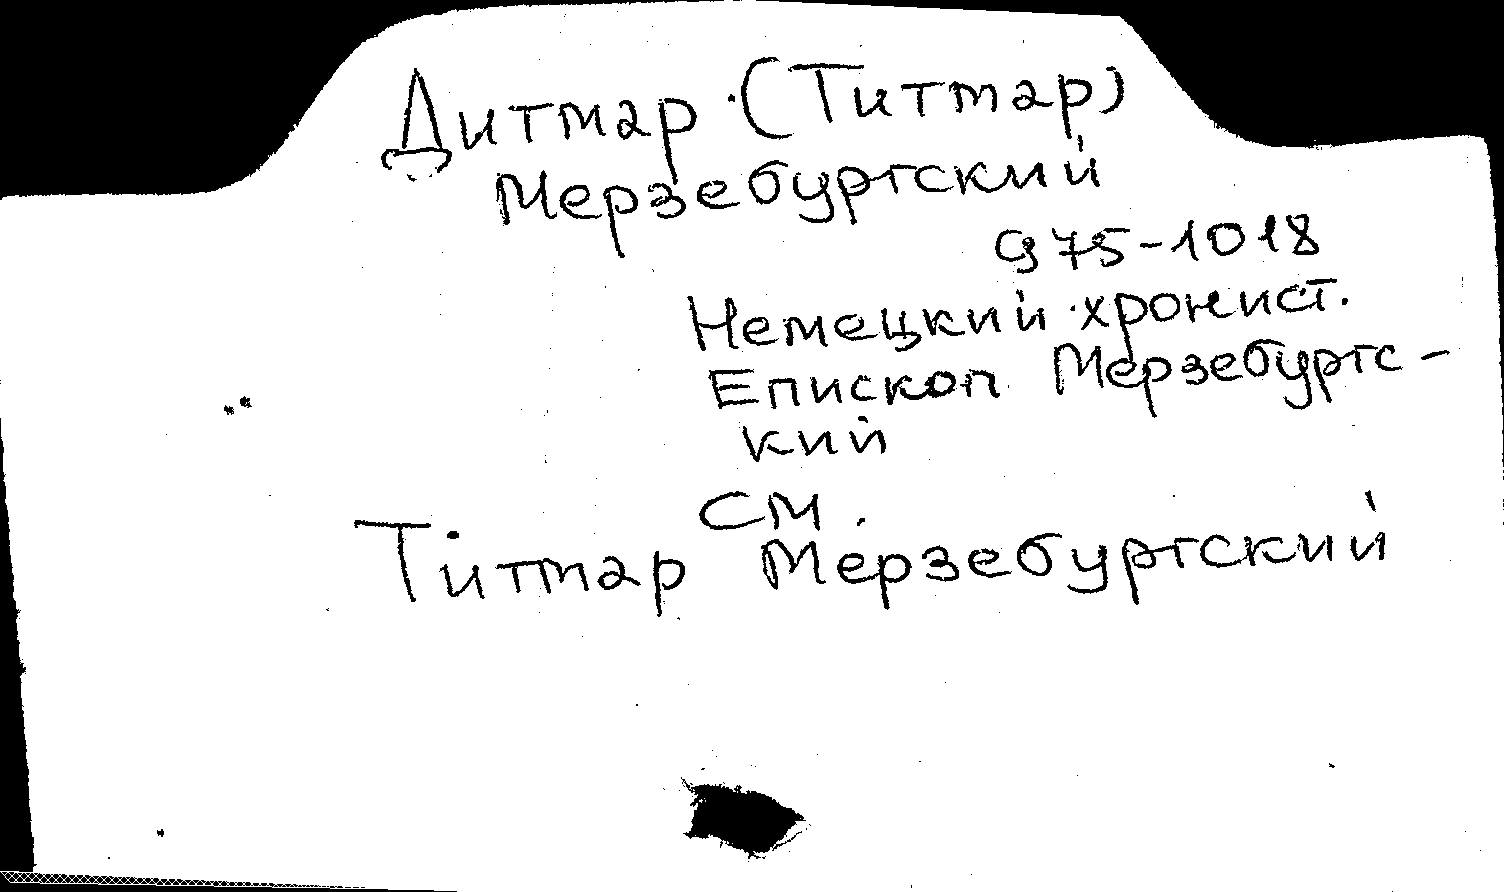 Дитмар (Титмар)
Мерзебургский
975-1018
Немецкий хронист.
Епископ Мерзебургс-
кий
см.
Титмар Мерзебургский